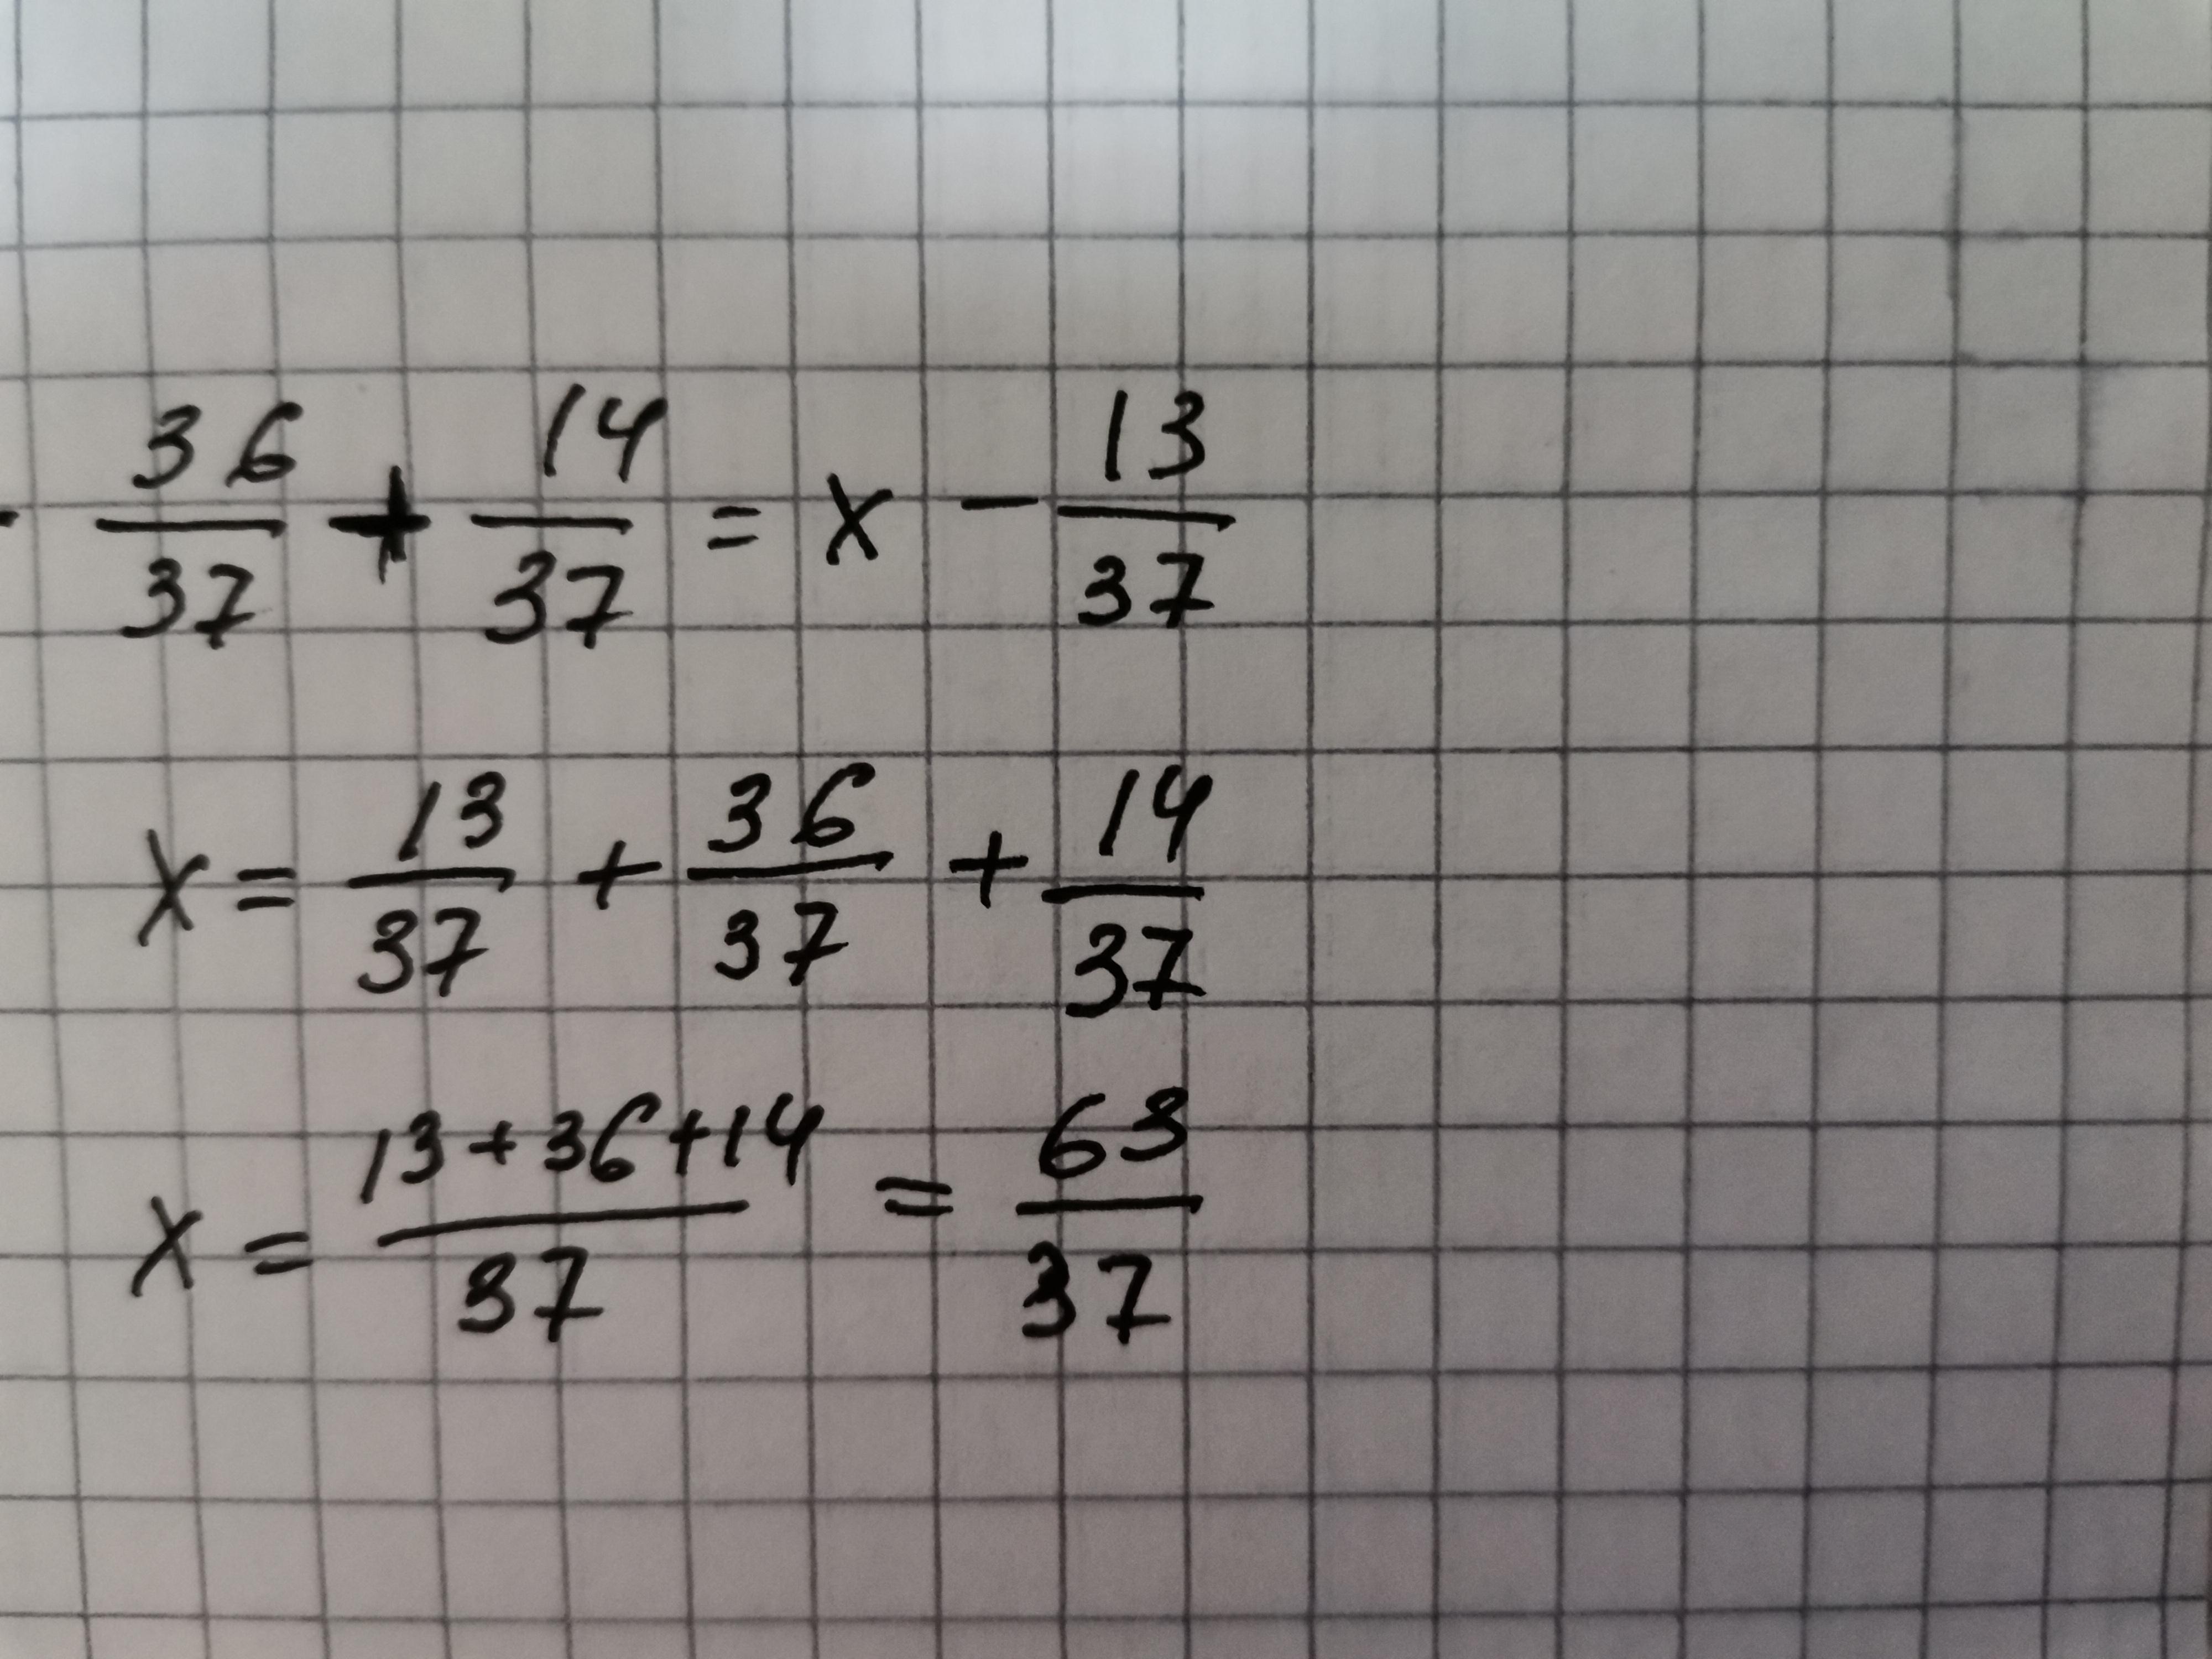 - 36/37 + 14/37 = x - 13/37
x = 13/37 + 36/37 + 14/37
x = (13+36+14)/37 = 63/37